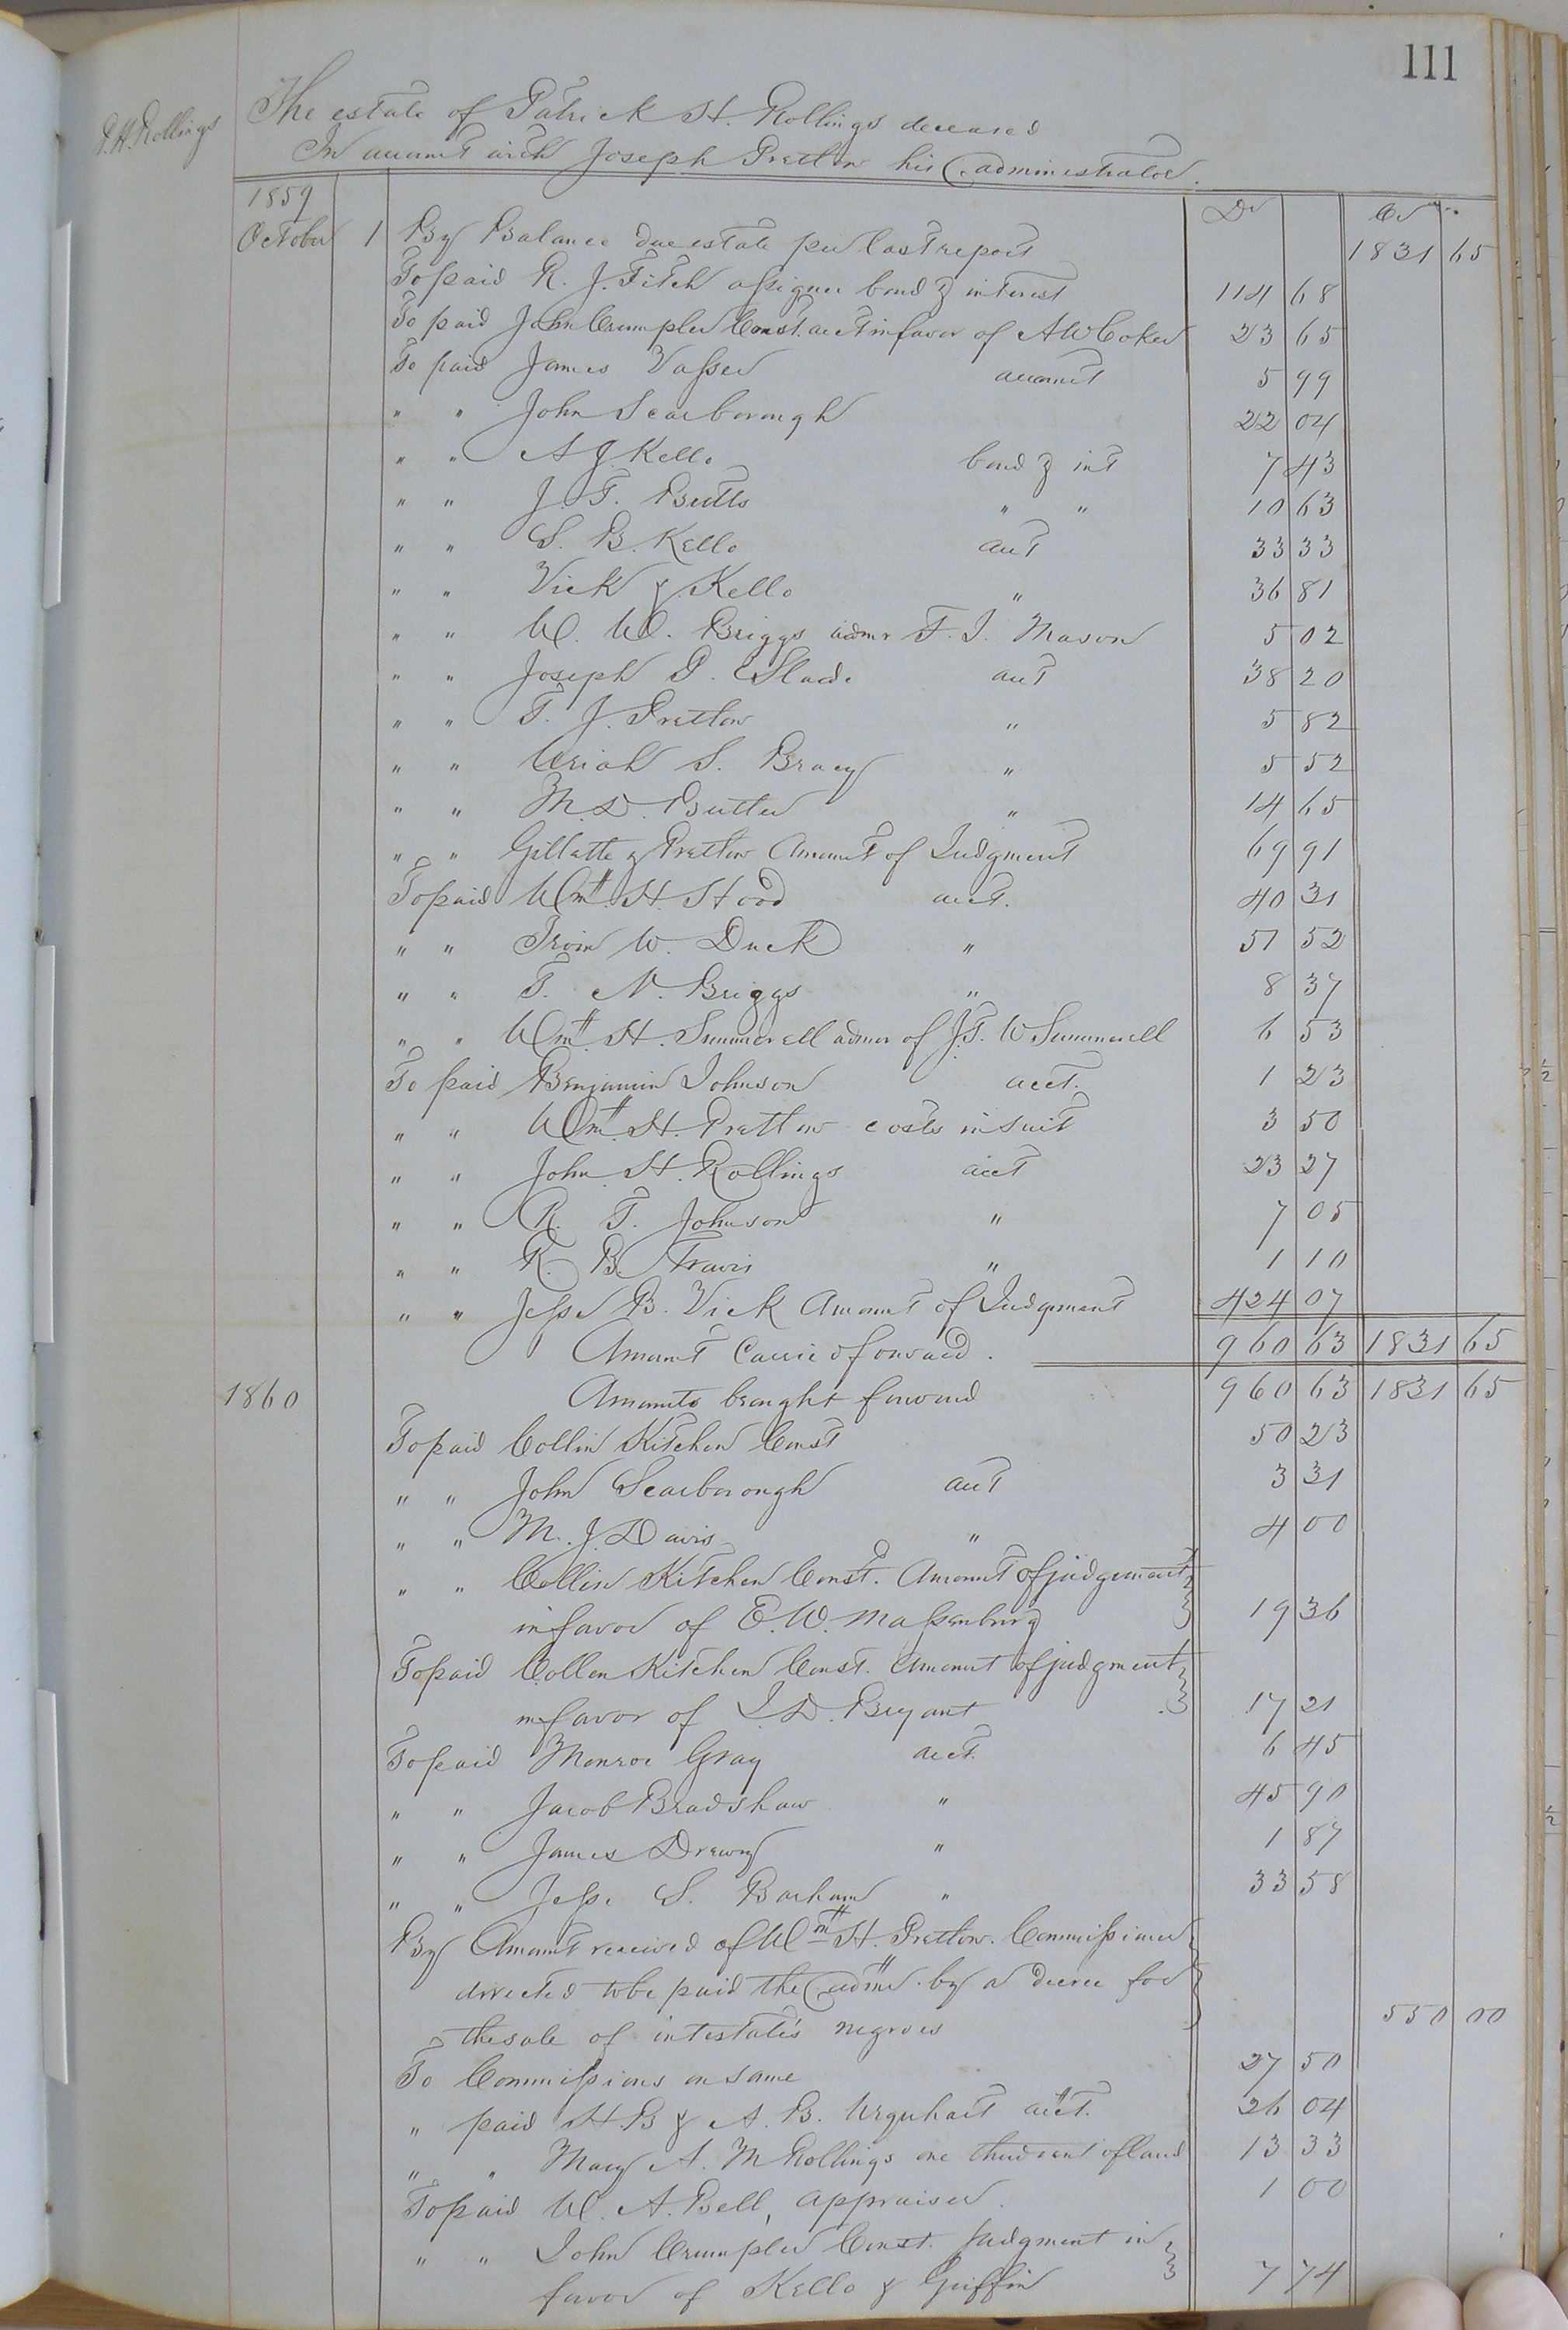 111
P.H. Rollings
The estate of Patrick H. Rollings deceased
In account with Joseph Pretlow his administrator.
1859 Dr Cr
October 1 By Balance due estate per last report 1831 65
To paid R. J. Fitch assignee bond & interest 114 68
To paid John Crumpler Const. acct in favor of A W Coker 23 65
To paid James Vasser account 5 99
" " John Scarborough 22 04
" " A J. Kello bond & int 7 43
" " J. T. Butts " " 10 63
" " S. B. Kello acct 33 33
" " Vick & Kello " 36 81
" " W. W. Briggs admr F. J. Mason 5 02
" " Joseph P. Slade acct 38 20
" " T. J. Pretlow " 5 82
" " Uriah S. Bracy " 5 52
" " M. D. Butler " 14 65
" " Gillette & Pretlow Amount of Judgment 69 91
To paid Wm. H. Hood acct. 40 31
" " Troin W. Duck " 51 52
" " T. N. Briggs " 8 37
" " Wm. H. Summerell admor of J. T. W Summerell 6 53
To paid Benjamin Johnson acct. 1 23
" " Wm. H. Pretlow costs in suit 3 50
" " John H. Rollings acct 23 27
" " R. T. Johnson " 7 05
" " R. B. Travis " 1 10
" " Jesse B. Vick Amount of Judgment 424 07
Amount Carried forward. 960 63 1831 65
1860 Amounts brought forward 960 63 1831 65
To paid Collin Kitchen Const 50 23
" " John Scarborough acct 3 31
" " M. J. Davis " 4 00
" " Collin Kitchen Const. Amount of judgement
in favor of E. W. Massenburg 19 36
To paid Collen Kitchen Const. Amount of judgment
in favor of J. D. Bryant 17 21
To paid Monroe Gray acct. 6 45
" " Jacob Bradshaw " 45 90
" " James Drewry " 1 87
" " Jesse S. Barham " 33 58
By Amount received of Wm H. Pretlow. Commissioner
directed to be paid the admr. by a decree for
the sale of intestate's negroes 550 00
To Commissions on same 27 50
" paid H B & A. B. Urquhart acct. 26 04
" " Mary A. M Rollings one third rent of land 13 33
To paid W. A. Bell, appraiser. 1 00
" " John Crumpler Const. Judgment in
favor of Kello & Griffin 7 74